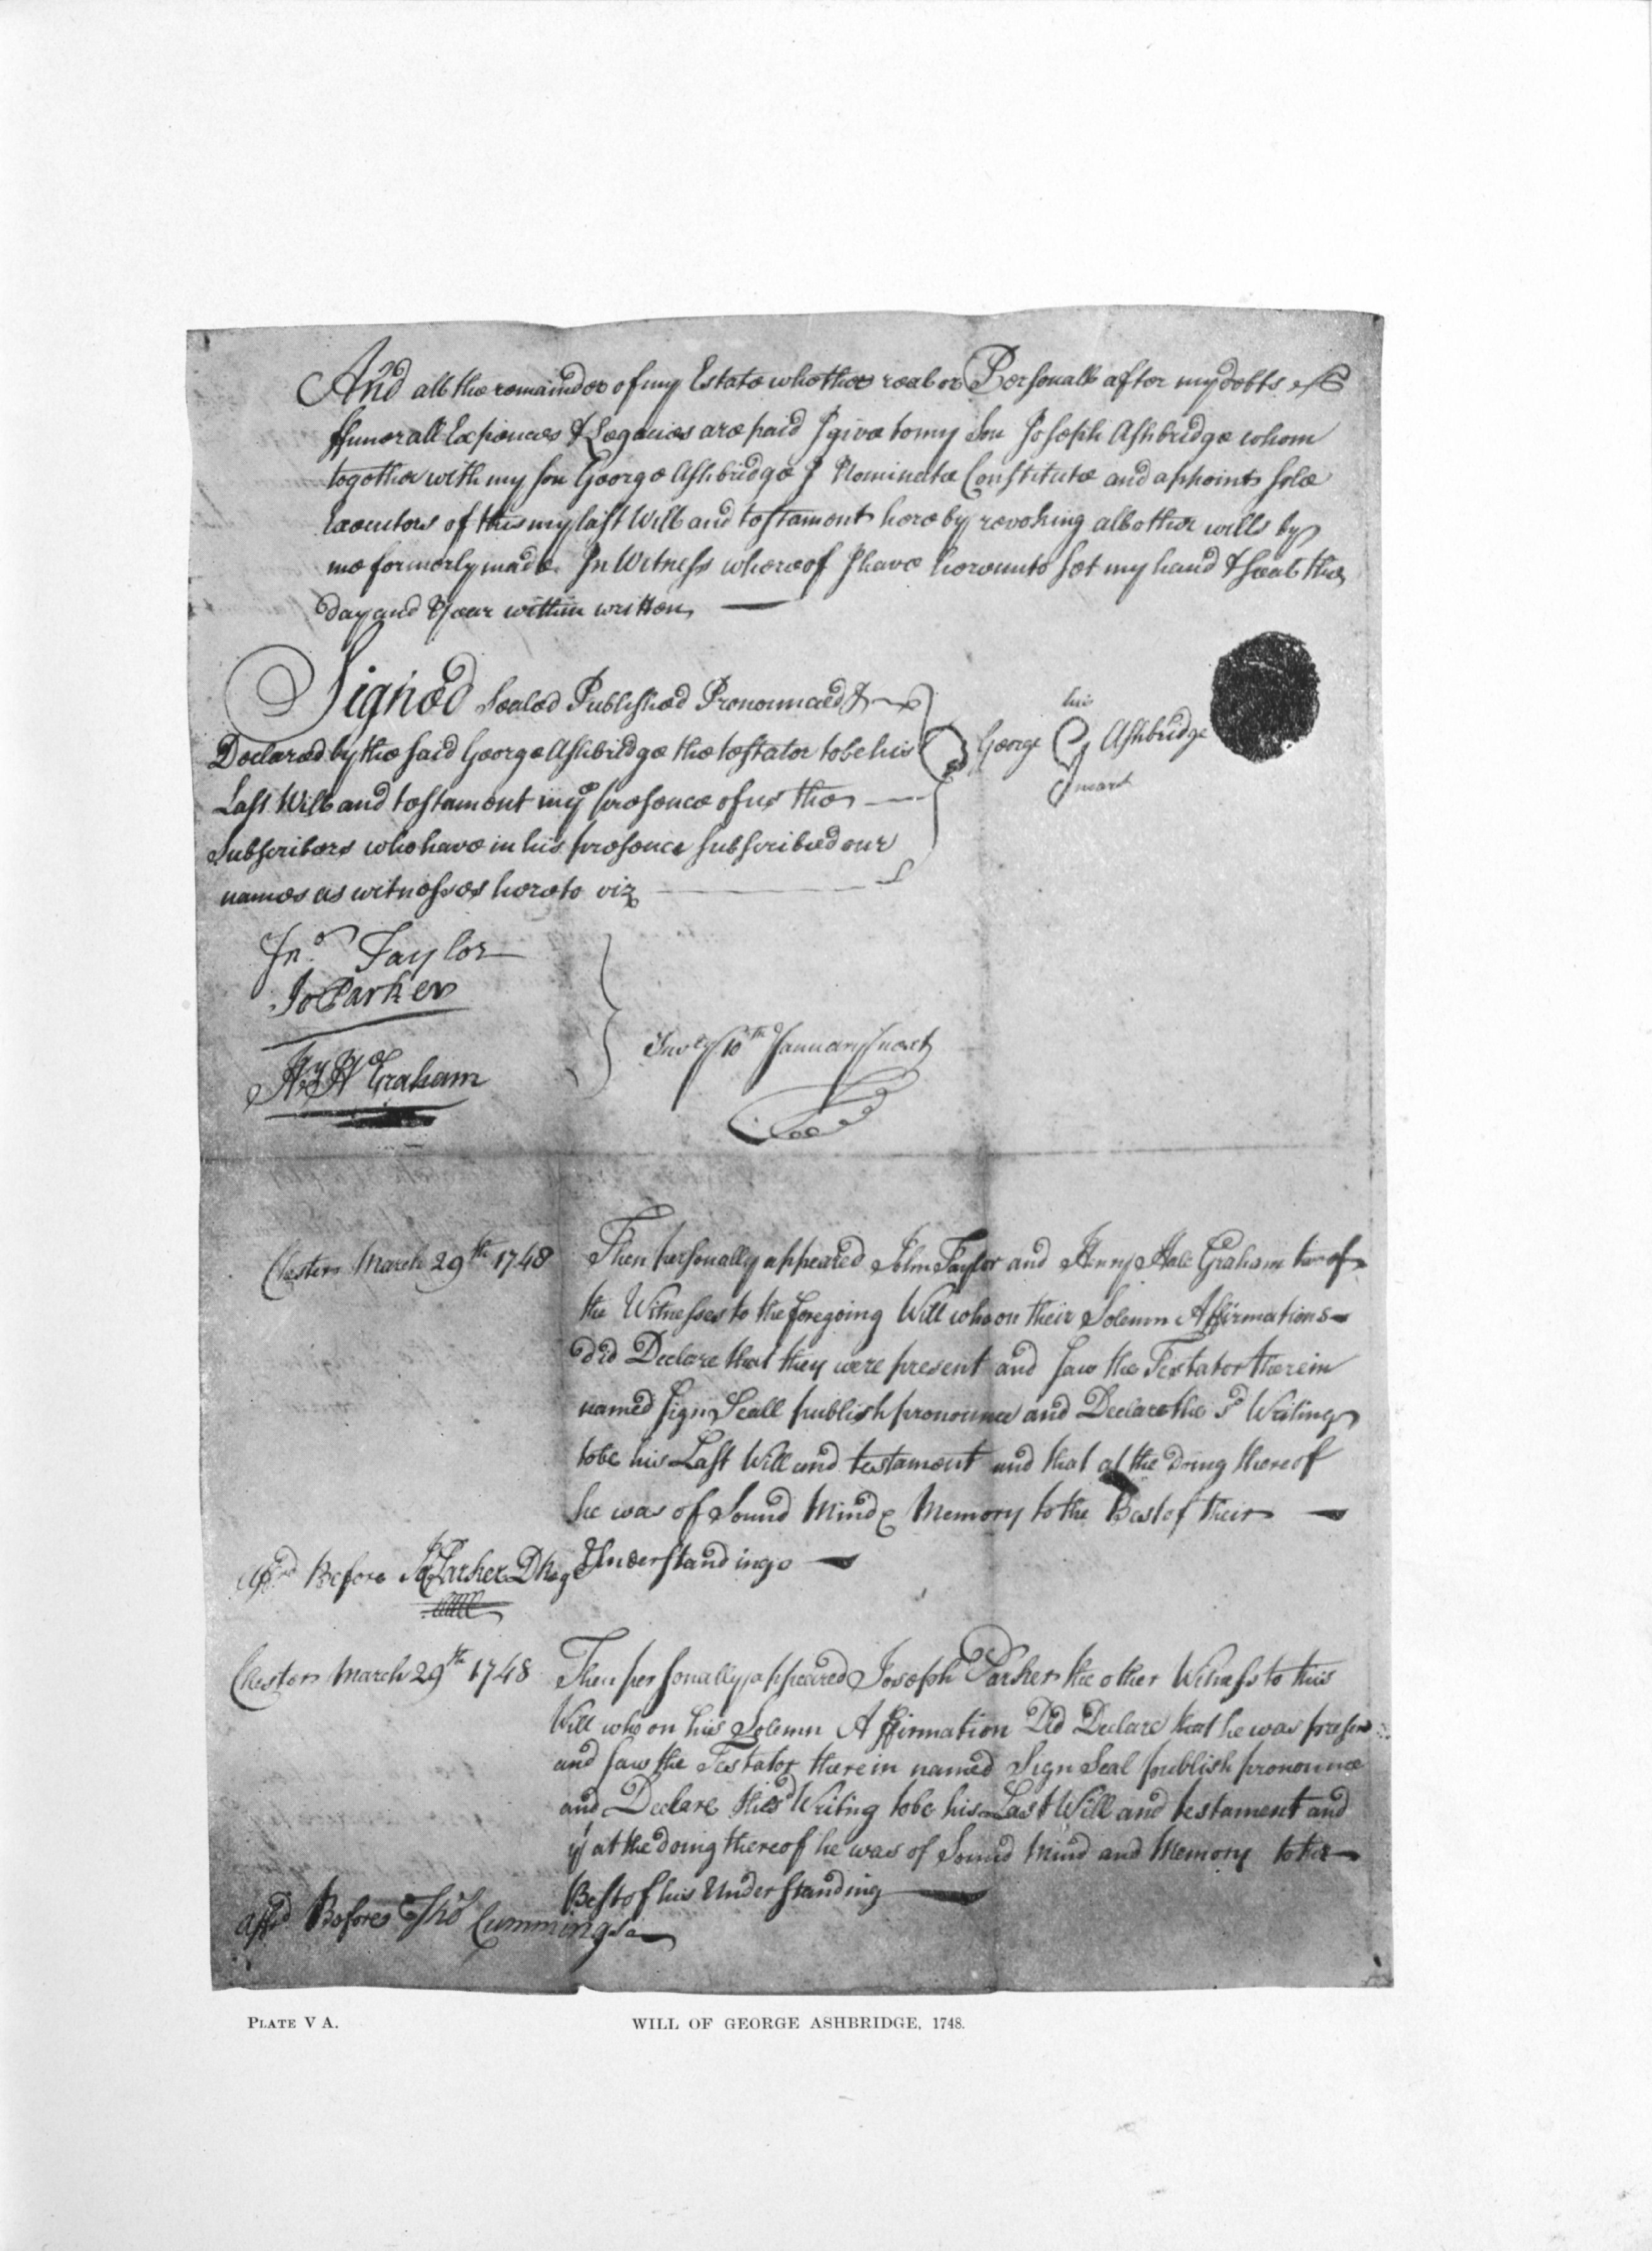 And all the remainder of my Estate whether real or Personall after my debts
ffunerall Expences & Legacies are paid I give to my Son Joseph Ashbridge whom
together with my son George Ashbridge I Nominate Constitute and appoint sole
Executors of this my last Will and testament hereby revoking all other wills by
me formerly made. In Witness whereof I have hereunto set my hand & seal the
Day and Year within written
Signed Sealed Published Pronounced &
Declared by the said George Ashbridge the testator to be his
Last Will and testament in ye presence of us the
Subscribers who have in his presence subscribed our
names as witnesses hereto viz
his
George G Ashbridge
mark
Jno. Taylor
Jo Parker
Hy H Graham
10th January next
Chester March 29th 1748
Then personally appeared John Taylor and Henry Hale Graham two of
the Witnesses to the foregoing Will who on their Solemn Affirmations
did Declare that they were present and saw the Testator therein
named Sign Seall publish pronounce and Declare the sd Writing
to be his Last Will and testament and that at the Doing thereof
he was of Sound Mind & Memory to the Best of their
Understandings
Affd Before Jo Parker D Reg
Chester March 29th 1748
Then personally appeared Joseph Parker the other Witness to this
Will who on his Solemn Affirmation Did Declare that he was present
and saw the Testator therein named Sign Seal publish pronounce
and Declare the sd Writing to be his Last Will and testament and
yt at the doing thereof he was of Sound Mind and Memory to the
Best of his Understanding
Affd Before Tho Cummings
PLATE V A.
WILL OF GEORGE ASHBRIDGE, 1748.